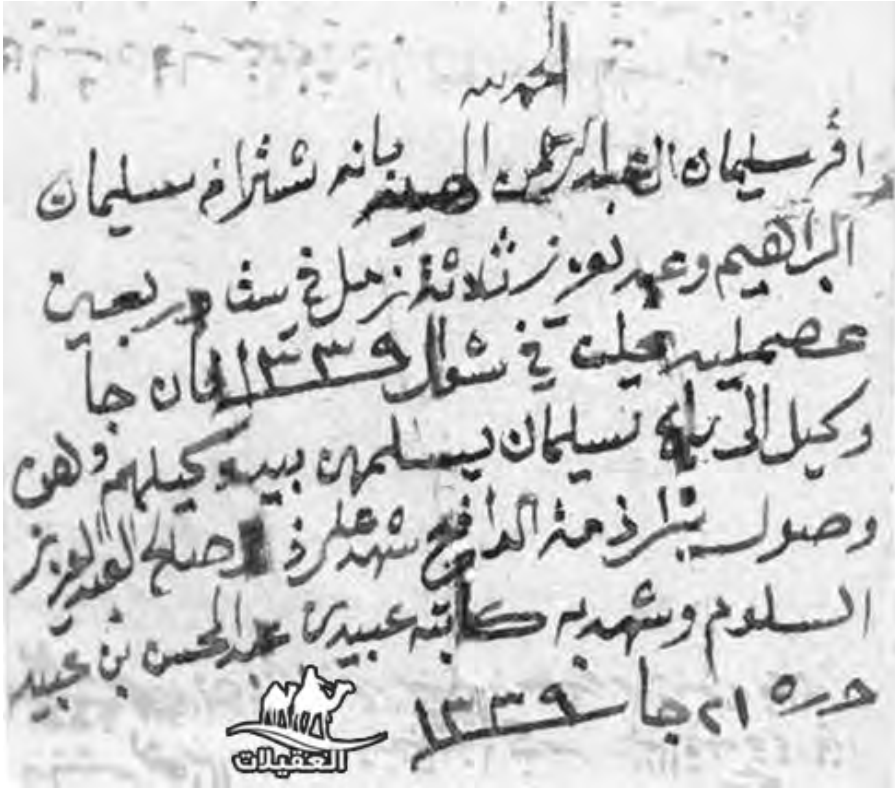 الحمد لله
اقر سليمان العبدالرحمن بانه شترا من سليمان
البراهيم وعبد لعزيز ثلاثة زمل في ست وربعين
في شوال ١٣٣٩ فان جا
وكيل الى سليمان يسلمهن بيد وكيلهم ولهن
وصول يبرا ذمة الدافع شهد على ذ صالح العبدالعزيز
السلوم وشهد به كاتبه عبدالمحسن بن عبيد
حرره ٢١ جا ١٣٣٩
العقيلات